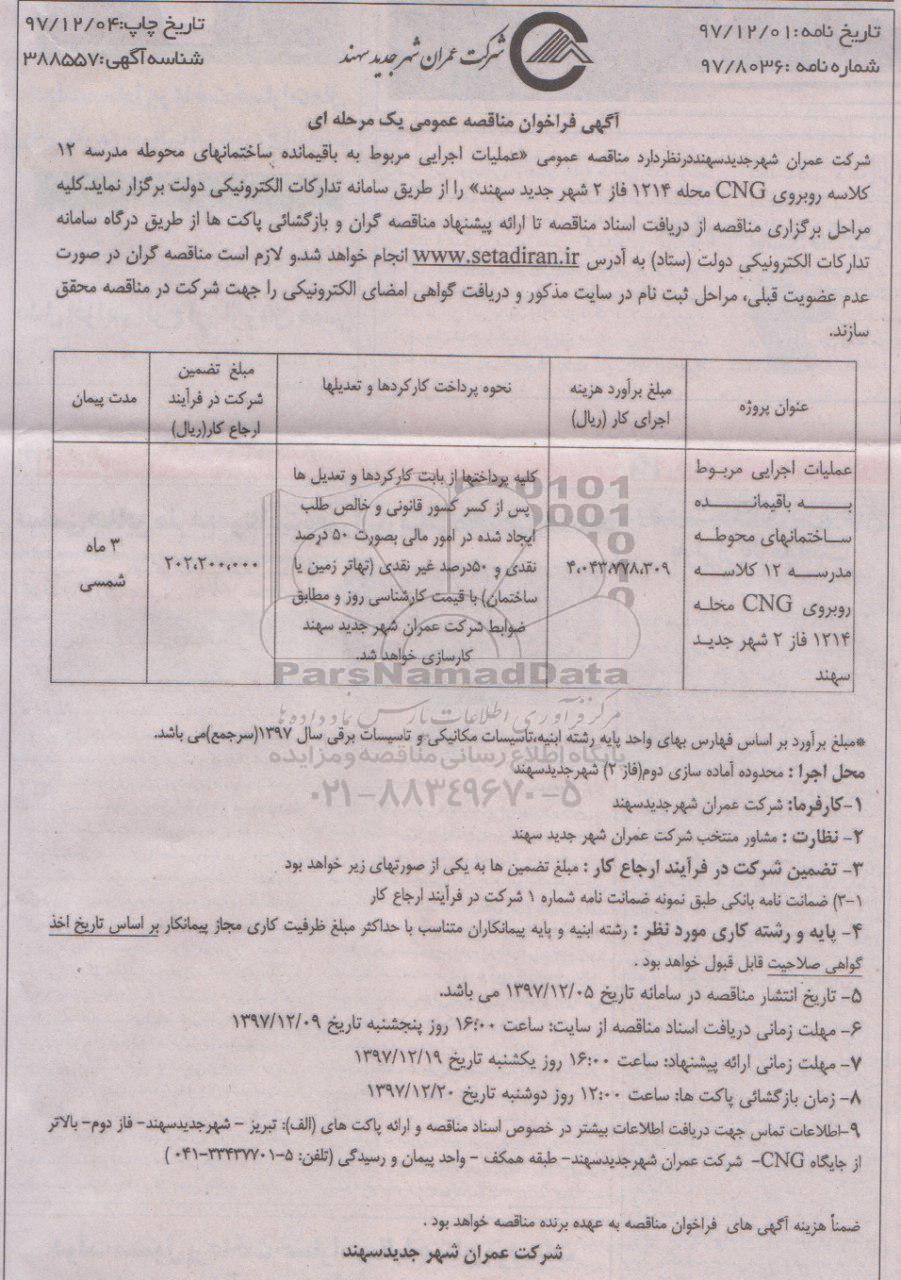 تاریخ نامه: ۹۷/۱۲/۰۱
شماره نامه: ۹۷/۸۰۳۶
شرکت عمران شهر جدید سهند
تاریخ چاپ: ۹۷/۱۲/۰۴
شناسه آگهی: ۳۸۸۵۵۷
آگهی فراخوان مناقصه عمومی یک مرحله ای
شرکت عمران شهرجدیدسهنددرنظردارد مناقصه عمومی «عملیات اجرایی مربوط به باقیمانده ساختمانهای محوطه مدرسه ۱۲
کلاسه روبروی CNG محله ۱۲۱۴ فاز ۲ شهر جدید سهند» را از طریق سامانه تدارکات الکترونیکی دولت برگزار نماید.کلیه
مراحل برگزاری مناقصه از دریافت اسناد مناقصه تا ارائه پیشنهاد مناقصه گران و بازگشائی پاکت ها از طریق درگاه سامانه
تدارکات الکترونیکی دولت (ستاد) به آدرس www.setadiran.ir انجام خواهد شد.و لازم است مناقصه گران در صورت
عدم عضویت قبلی، مراحل ثبت نام در سایت مذکور و دریافت گواهی امضای الکترونیکی را جهت شرکت در مناقصه محقق
سازند.
عنوان پروژه
مبلغ برآورد هزینه
اجرای کار (ریال)
نحوه پرداخت کارکردها و تعدیلها
مبلغ تضمین
شرکت در فرآیند
ارجاع کار(ریال)
مدت پیمان
عملیات اجرایی مربوط
به باقیمانده
ساختمانهای محوطه
مدرسه ۱۲ کلاسه
روبروی CNG محله
۱۲۱۴ فاز ۲ شهر جدید
سهند
۴،۰۴۳،۷۷۸،۳۰۹
کلیه پرداختها از بابت کارکردها و تعدیل ها
پس از کسر کسور قانونی و خالص طلب
ایجاد شده در امور مالی بصورت ۵۰ درصد
نقدی و ۵۰درصد غیر نقدی (تهاتر زمین یا
ساختمان) با قیمت کارشناسی روز و مطابق
ضوابط شرکت عمران شهر جدید سهند
کارسازی خواهد شد.
۲۰۲،۲۰۰،۰۰۰
۳ ماه
شمسی
ParsNamadData
مرکز فرآوری اطلاعات پارس نماد داده ها
*مبلغ برآورد بر اساس فهارس بهای واحد پایه رشته ابنیه،تاسیسات مکانیکی و تاسیسات برقی سال ۱۳۹۷(سرجمع)می باشد.
پایگاه اطلاع رسانی مناقصه و مزایده
محل اجرا : محدوده آماده سازی دوم(فاز ۲) شهرجدیدسهند
۰۲۱-۸۸۳۴۹۶۷۰-۵
۱-کارفرما: شرکت عمران شهرجدیدسهند
۲- نظارت : مشاور منتخب شرکت عمران شهر جدید سهند
۳- تضمین شرکت در فرآیند ارجاع کار : مبلغ تضمین ها به یکی از صورتهای زیر خواهد بود
۳-۱) ضمانت نامه بانکی طبق نمونه ضمانت نامه شماره ۱ شرکت در فرآیند ارجاع کار
۴- پایه و رشته کاری مورد نظر : رشته ابنیه و پایه پیمانکاران متناسب با حداکثر مبلغ ظرفیت کاری مجاز پیمانکار بر اساس تاریخ اخذ
گواهی صلاحیت قابل قبول خواهد بود .
۵- تاریخ انتشار مناقصه در سامانه تاریخ ۱۳۹۷/۱۲/۰۵ می باشد.
۶- مهلت زمانی دریافت اسناد مناقصه از سایت: ساعت ۱۶:۰۰ روز پنجشنبه تاریخ ۱۳۹۷/۱۲/۰۹
۷- مهلت زمانی ارائه پیشنهاد: ساعت ۱۶:۰۰ روز یکشنبه تاریخ ۱۳۹۷/۱۲/۱۹
۸- زمان بازگشائی پاکت ها: ساعت ۱۲:۰۰ روز دوشنبه تاریخ ۱۳۹۷/۱۲/۲۰
۹-اطلاعات تماس جهت دریافت اطلاعات بیشتر در خصوص اسناد مناقصه و ارائه پاکت های (الف): تبریز - شهرجدیدسهند- فاز دوم- بالاتر
از جایگاه CNG- شرکت عمران شهرجدیدسهند- طبقه همکف - واحد پیمان و رسیدگی (تلفن: ۵-۳۳۴۳۷۷۰۱-۰۴۱ )
ضمناً هزینه آگهی های فراخوان مناقصه به عهده برنده مناقصه خواهد بود .
شرکت عمران شهر جدیدسهند